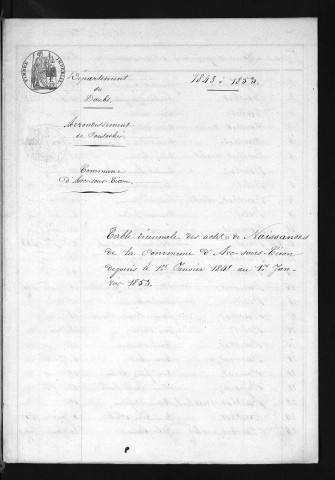 TIMBRE IMPERIAL
Département
du
Doubs.
1843 à 1853.
Arrondissement
de Pontarlier
Commune
d'Arc-sous-Cicon
Table décennale des actes de Naissances
de la Commune d'Arc-sous-Cicon
depuis le 1er Janvier 1843 au 1er Jan-
vier 1853.